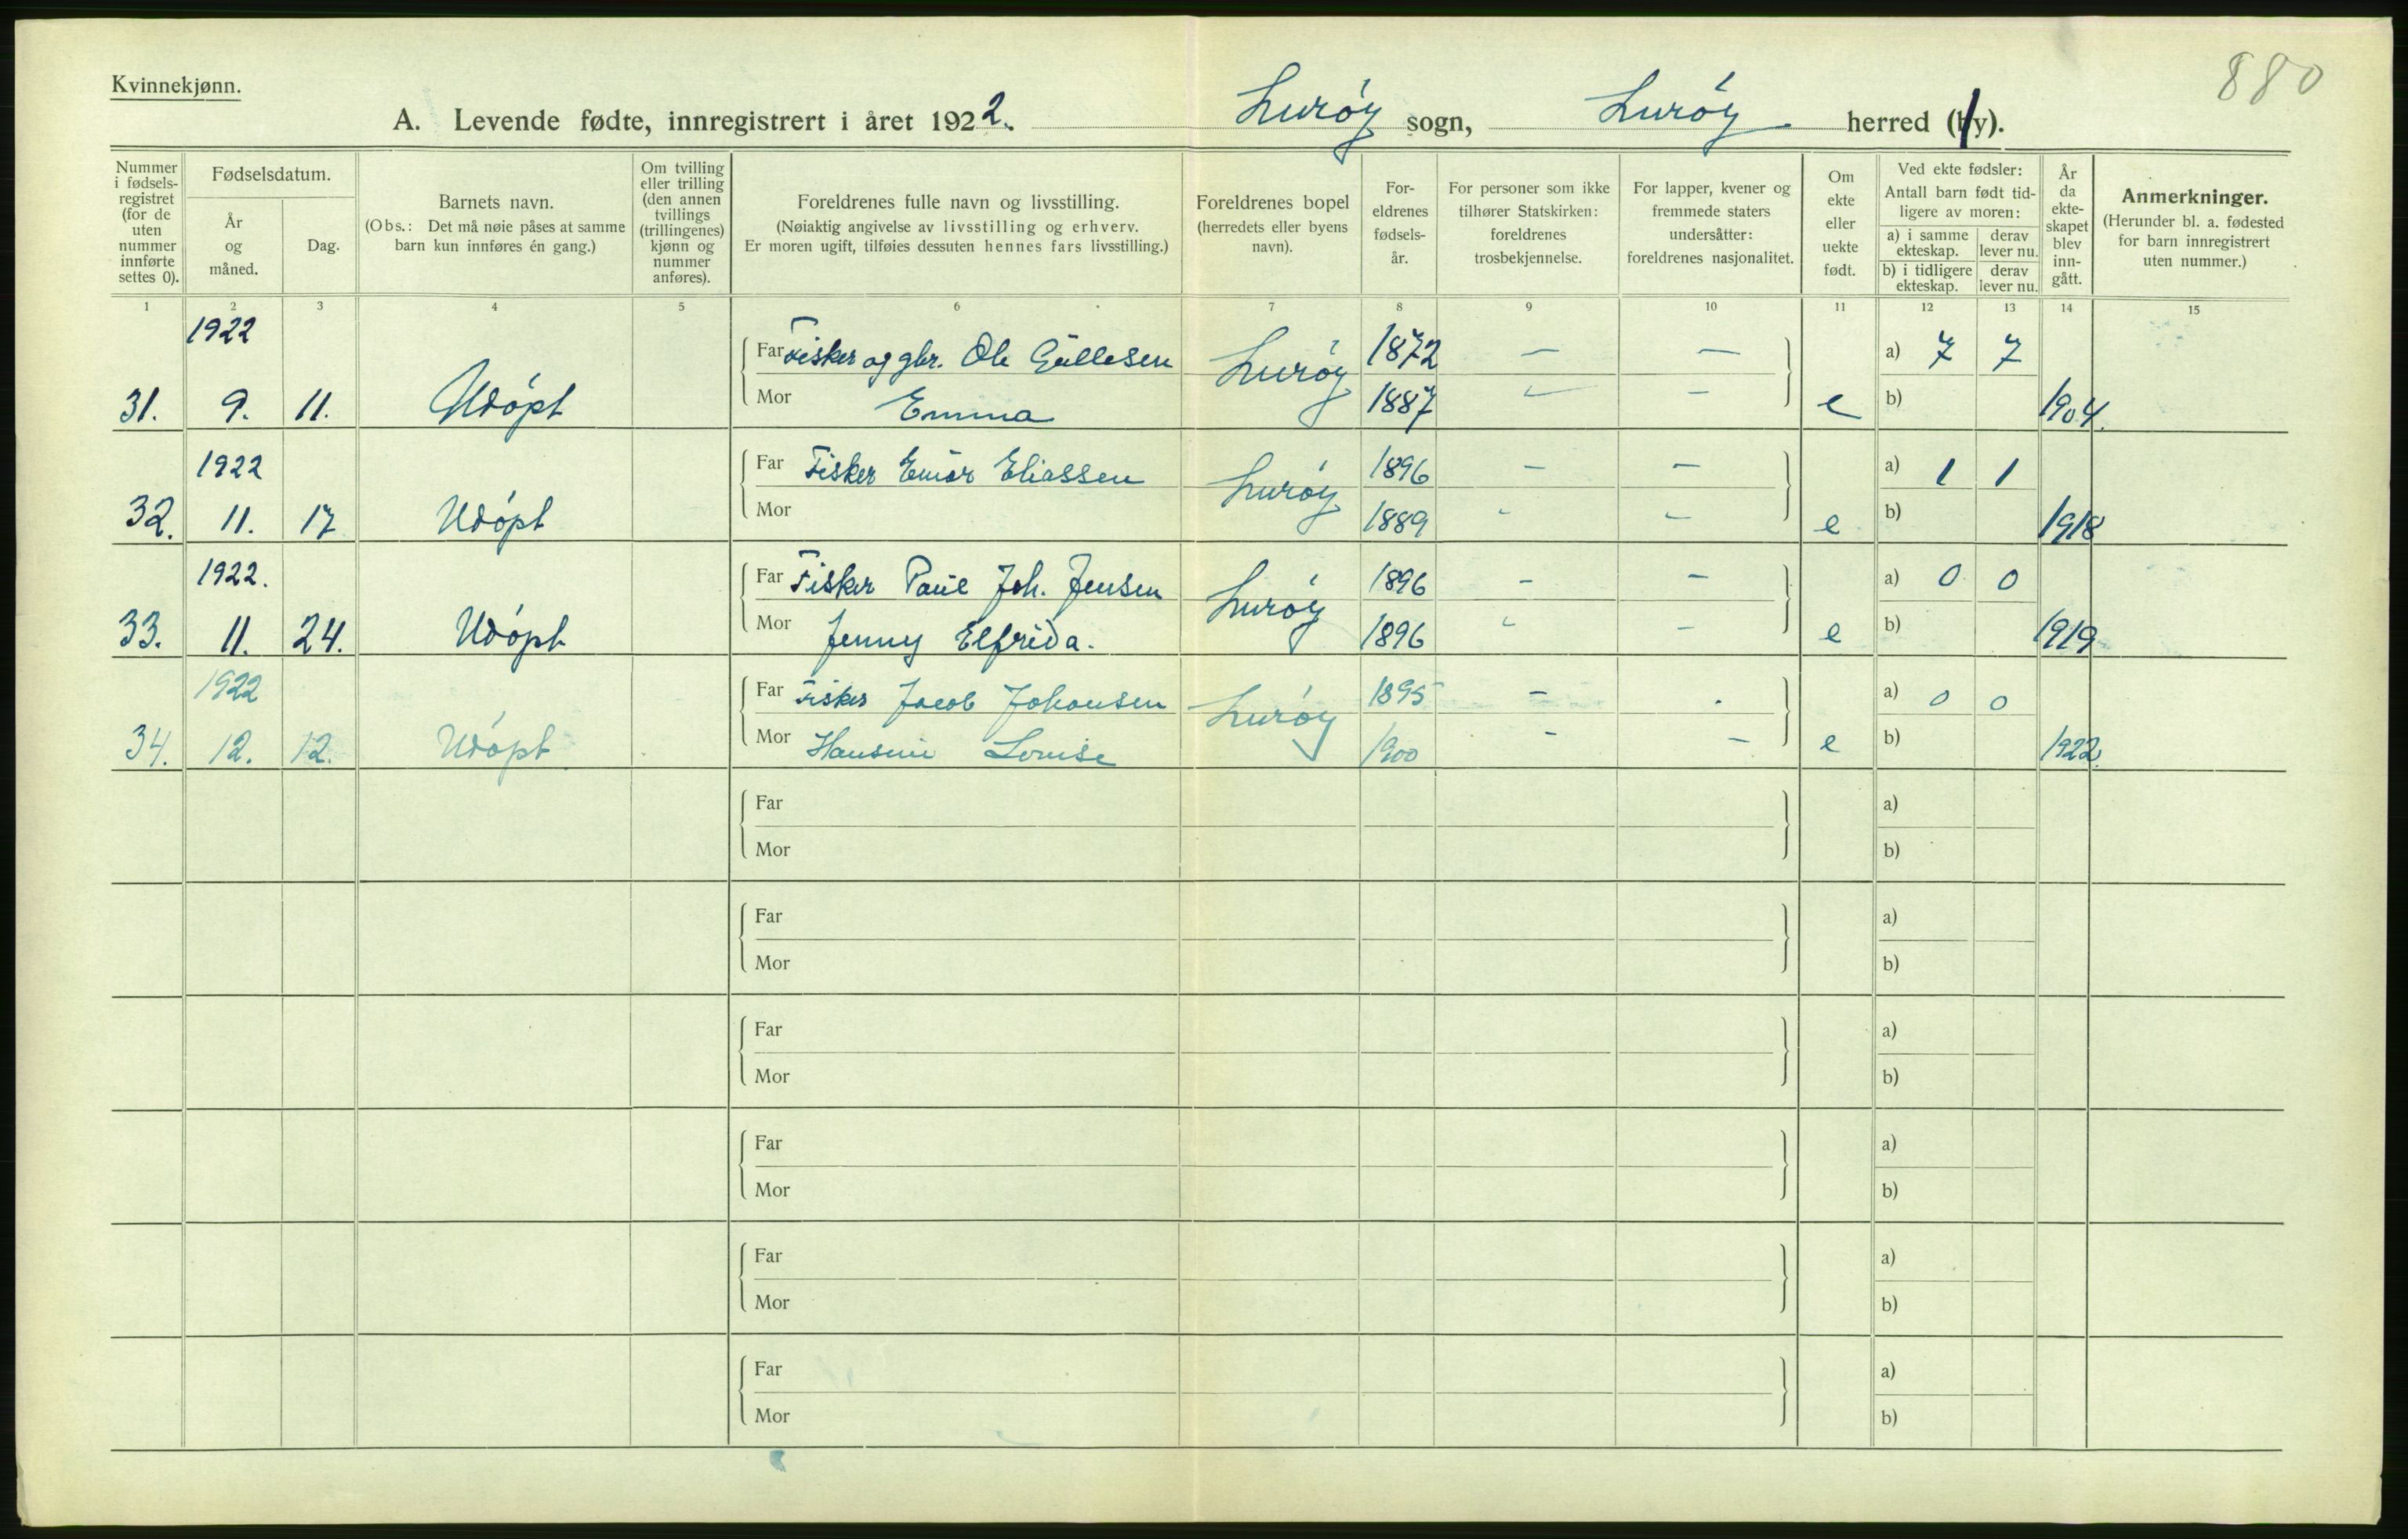 880
Kvinnekjønn.
A. Levende fødte, innregistrert i året 1922. Lurøy sogn, Lurøy herred (by).
Nummer i fødsels-registret (for de uten nummer innførte settes 0).
Fødselsdatum.
År og måned.
Dag.
Barnets navn.
(Obs.: Det må nøie påses at samme barn kun innføres én gang.)
Om tvilling eller trilling (den annen tvillings (trillingenes) kjønn og nummer anføres).
Foreldrenes fulle navn og livsstilling.
(Nøiaktig angivelse av livsstilling og erhverv.
Er moren ugift, tilføies dessuten hennes fars livsstilling.)
Foreldrenes bopel
(herredets eller byens navn).
For-eldrenes fødsels-år.
For personer som ikke tilhører Statskirken: foreldrenes trosbekjennelse.
For lapper, kvener og fremmede staters undersåtter: foreldrenes nasjonalitet.
Om ekte eller uekte født.
Ved ekte fødsler:
Antall barn født tid-ligere av moren:
a) i samme ekteskap.
derav lever nu.
b) i tidligere ekteskap.
derav lever nu.
År da ekte-skapet blev inn-gått.
Anmerkninger.
(Herunder bl. a. fødested for barn innregistrert uten nummer.)
1 2 3 4 5 6 7 8 9 10 11 12 13 14 15
1922 Far Fisker og gbr. Ole Gullesen Lurøy 1872 — — a) 7 7
31. 9. 11. Udøpt Mor Emma 1887 — — e b) 1904.
1922 Far Fisker Einar Eliassen Lurøy 1896 — — a) 1 1
32. 11. 17 Udøpt Mor 1889 - - e b) 1918
1922. Far Fisker Paul Joh. Jensen Lurøy 1896 - — a) 0 0
33. 11. 24. Udøpt Mor Jenny Elfrida. 1896 - - e b) 1919
1922 Far Fisker Jacob Johansen Lurøy 1895 - . a) 0 0
34. 12. 12. Udøpt Mor Hansine Louise 1900 - - e b) 1922.
Far a)
Mor b)
Far a)
Mor b)
Far a)
Mor b)
Far a)
Mor b)
Far a)
Mor b)
Far a)
Mor b)